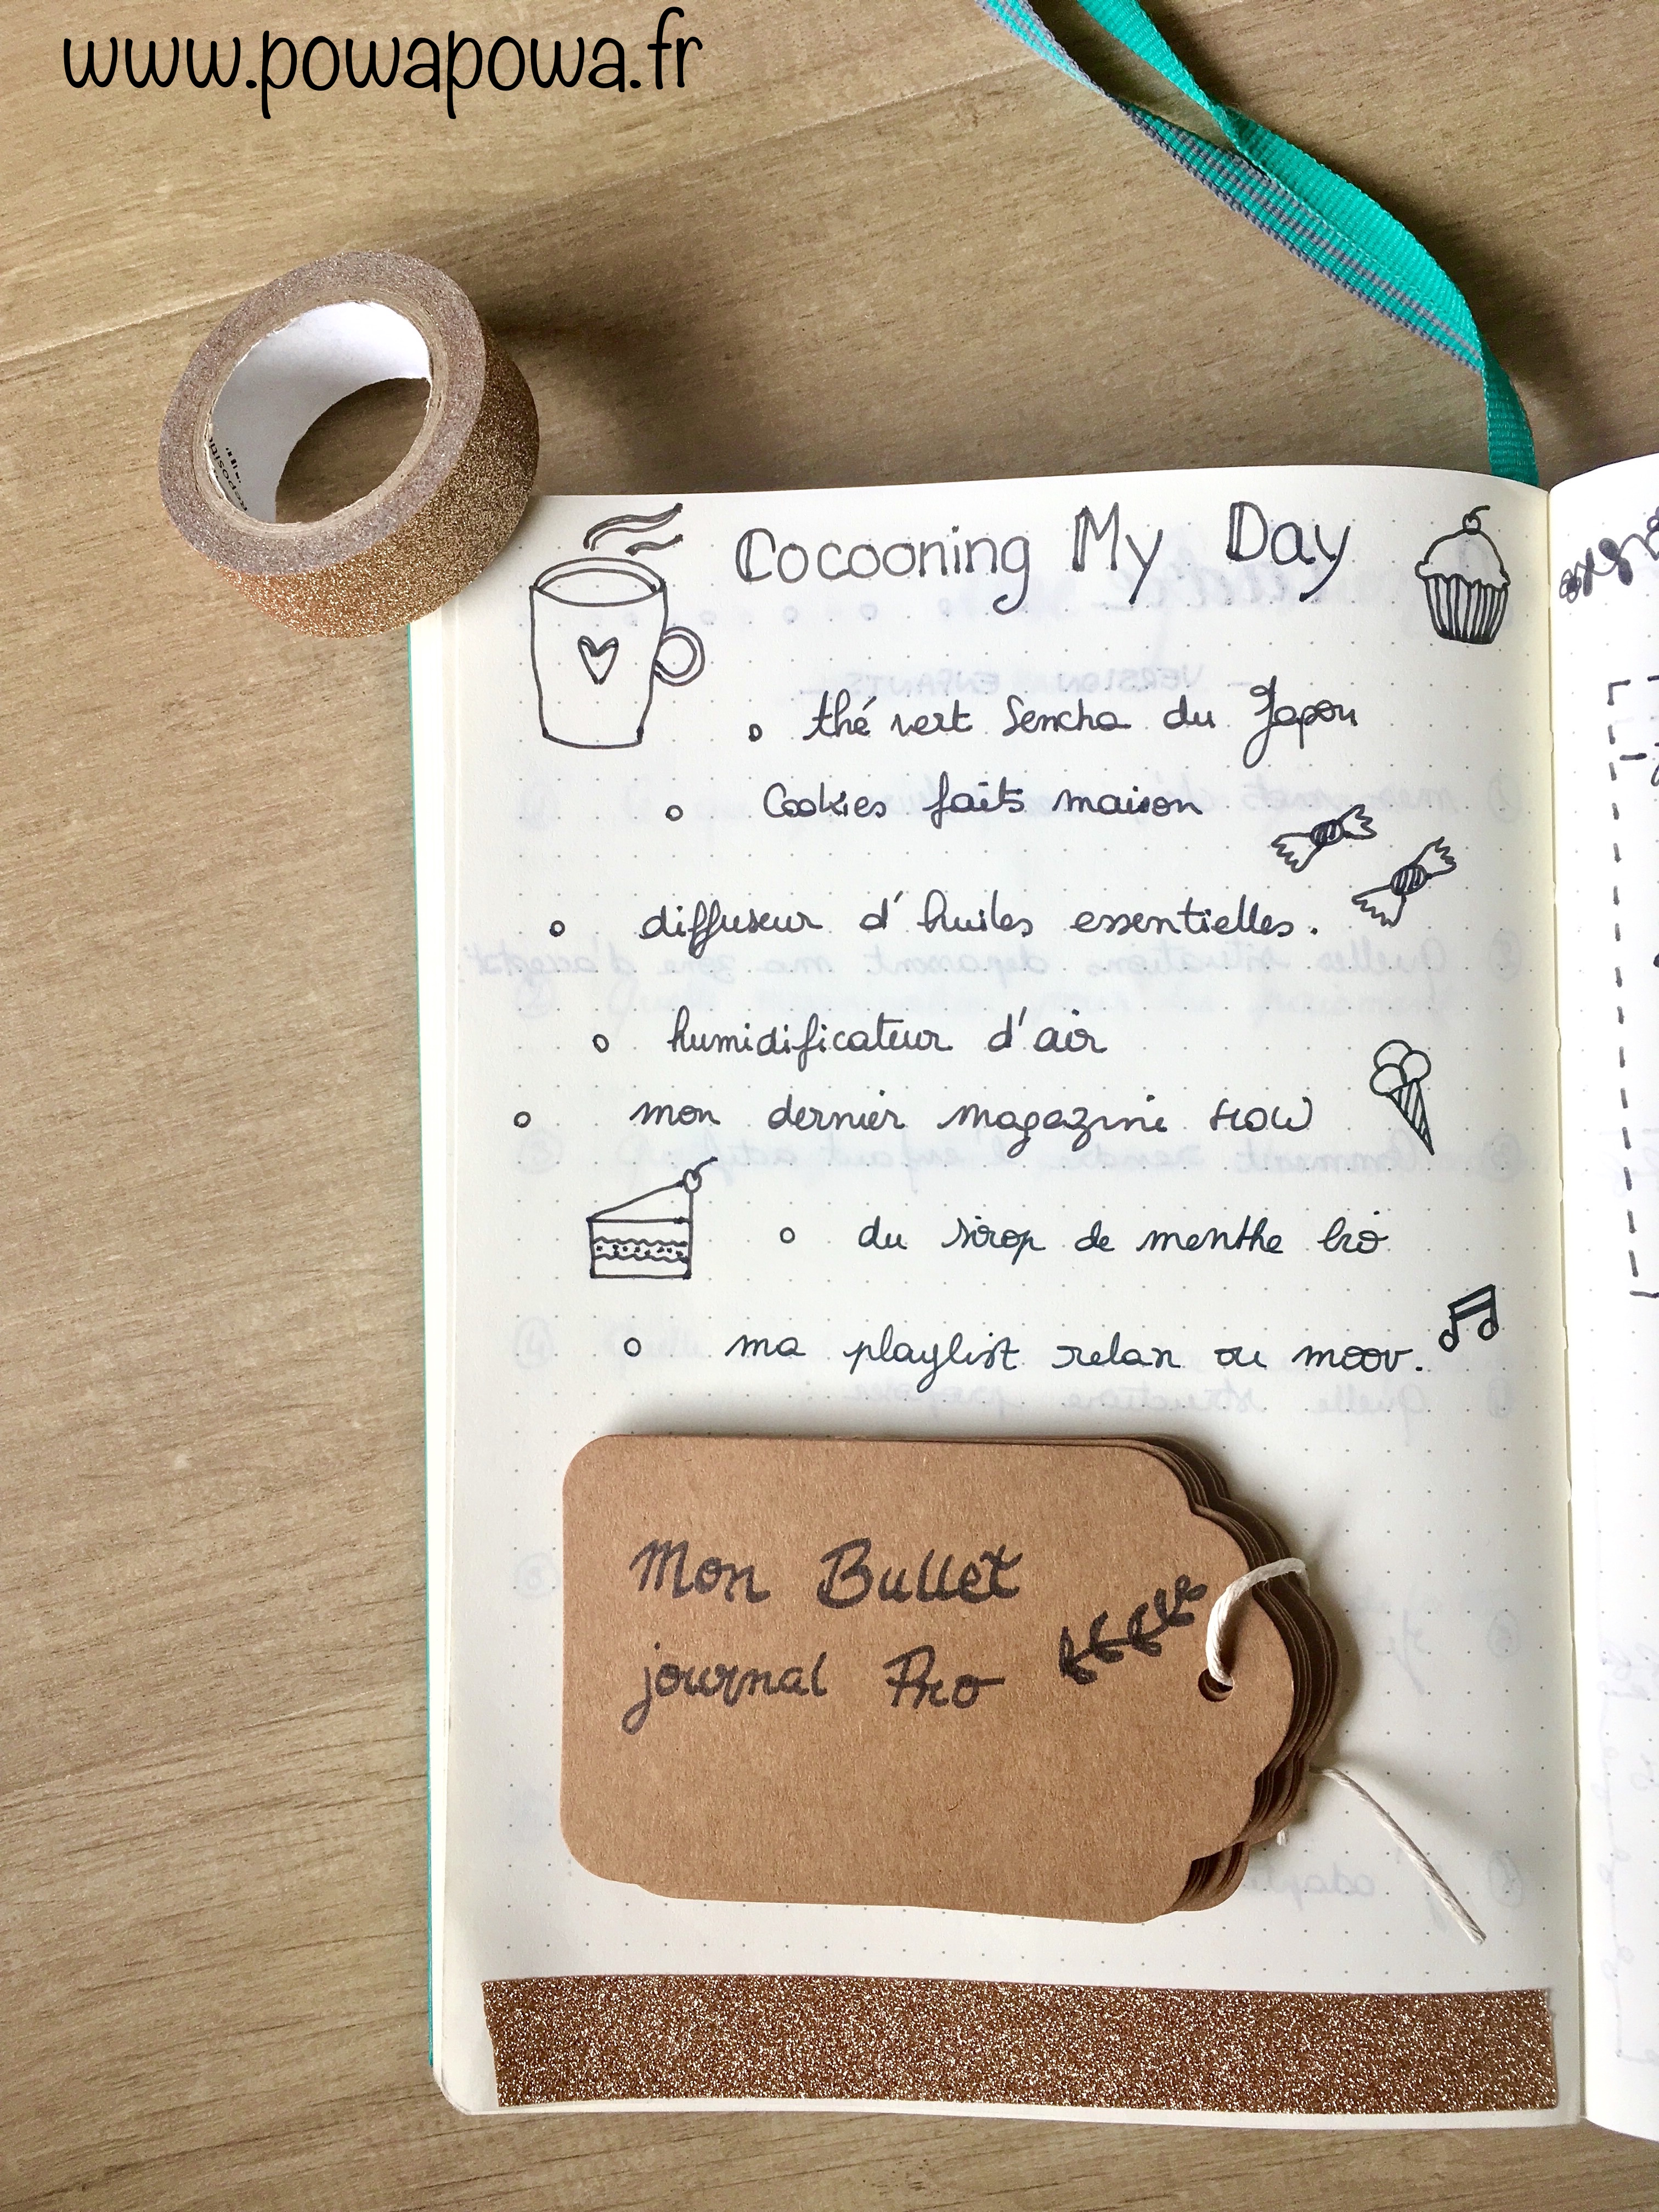 www.powapowa.fr
Cocooning My Day
thé vert Sencha du Japon
Cookies faits maison
diffuseur d'huiles essentielles.
humidificateur d'air
mon dernier magazine FLOW
du sirop de menthe bio
ma playlist relax ou moov.
Mon Bullet
journal Pro